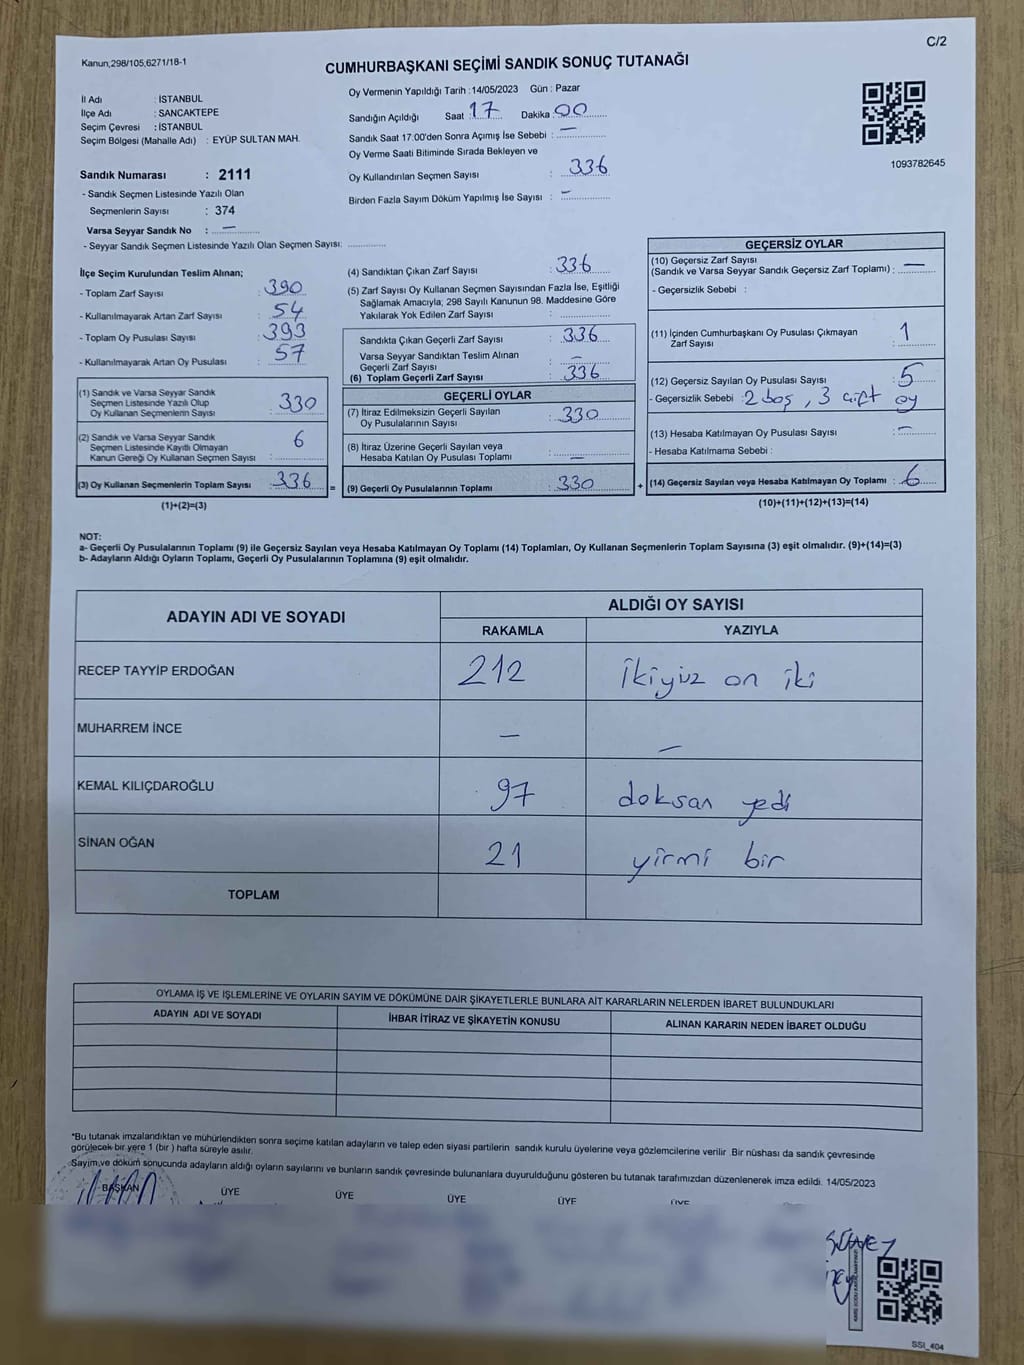 C/2
Kanun,298/105,6271/18-1
CUMHURBAŞKANI SEÇİMİ SANDIK SONUÇ TUTANAĞI
İl Adı : İSTANBUL
İlçe Adı : SANCAKTEPE
Seçim Çevresi : İSTANBUL
Seçim Bölgesi (Mahalle Adı) : EYÜP SULTAN MAH.
Sandık Numarası : 2111
- Sandık Seçmen Listesinde Yazılı Olan
Seçmenlerin Sayısı : 374
Varsa Seyyar Sandık No : —
- Seyyar Sandık Seçmen Listesinde Yazılı Olan Seçmen Sayısı:
Oy Vermenin Yapıldığı Tarih :14/05/2023 Gün : Pazar
Sandığın Açıldığı Saat : 17 Dakika : 00
Sandık Saat 17:00'den Sonra Açımış İse Sebebi : —
Oy Verme Saati Bitiminde Sırada Bekleyen ve
Oy Kullandırılan Seçmen Sayısı : 336
Birden Fazla Sayım Döküm Yapılmış İse Sayısı : —
1093782645
İlçe Seçim Kurulundan Teslim Alınan;
- Toplam Zarf Sayısı : 390
- Kullanılmayarak Artan Zarf Sayısı : 54
- Toplam Oy Pusulası Sayısı : 393
- Kullanılmayarak Artan Oy Pusulası : 57
(1) Sandık ve Varsa Seyyar Sandık
Seçmen Listesinde Yazılı Olup
Oy Kullanan Seçmenlerin Sayısı : 330
(2) Sandık ve Varsa Seyyar Sandık
Seçmen Listesinde Kayıtlı Olmayan
Kanun Gereği Oy Kullanan Seçmen Sayısı : 6
(3) Oy Kullanan Seçmenlerin Toplam Sayısı : 336
(1)+(2)=(3)
(4) Sandıktan Çıkan Zarf Sayısı : 336
(5) Zarf Sayısı Oy Kullanan Seçmen Sayısından Fazla İse, Eşitliği
Sağlamak Amacıyla; 298 Sayılı Kanunun 98. Maddesine Göre
Yakılarak Yok Edilen Zarf Sayısı :
Sandıkta Çıkan Geçerli Zarf Sayısı : 336
Varsa Seyyar Sandıktan Teslim Alınan
Geçerli Zarf Sayısı : —
(6) Toplam Geçerli Zarf Sayısı : 336
GEÇERLİ OYLAR
(7) İtiraz Edilmeksizin Geçerli Sayılan
Oy Pusulalarının Sayısı : 330
(8) İtiraz Üzerine Geçerli Sayılan veya
Hesaba Katılan Oy Pusulası Toplamı : —
(9) Geçerli Oy Pusulalarının Toplamı : 330
GEÇERSİZ OYLAR
(10) Geçersiz Zarf Sayısı
(Sandık ve Varsa Seyyar Sandık Geçersiz Zarf Toplamı) : —
- Geçersizlik Sebebi :
(11) İçinden Cumhurbaşkanı Oy Pusulası Çıkmayan
Zarf Sayısı : 1
(12) Geçersiz Sayılan Oy Pusulası Sayısı : 5
- Geçersizlik Sebebi : 2 boş, 3 çift oy
(13) Hesaba Katılmayan Oy Pusulası Sayısı : —
- Hesaba Katılmama Sebebi :
(14) Geçersiz Sayılan veya Hesaba Katılmayan Oy Toplamı : 6
(10)+(11)+(12)+(13)=(14)
NOT:
a- Geçerli Oy Pusulalarının Toplamı (9) ile Geçersiz Sayılan veya Hesaba Katılmayan Oy Toplamı (14) Toplamları, Oy Kullanan Seçmenlerin Toplam Sayısına (3) eşit olmalıdır. (9)+(14)=(3)
b- Adayların Aldığı Oyların Toplamı, Geçerli Oy Pusulalarının Toplamına (9) eşit olmalıdır.
ADAYIN ADI VE SOYADI ALDIĞI OY SAYISI
RAKAMLA YAZIYLA
RECEP TAYYİP ERDOĞAN 212 İkiyüz on iki
MUHARREM İNCE — —
KEMAL KILIÇDAROĞLU 97 doksan yedi
SİNAN OĞAN 21 yirmi bir
TOPLAM
OYLAMA İŞ VE İŞLEMLERİNE VE OYLARIN SAYIM VE DÖKÜMÜNE DAİR ŞİKAYETLERLE BUNLARA AİT KARARLARIN NELERDEN İBARET BULUNDUKLARI
ADAYIN ADI VE SOYADI İHBAR İTİRAZ VE ŞİKAYETİN KONUSU ALINAN KARARIN NEDEN İBARET OLDUĞU
*Bu tutanak imzalandıktan ve mühürlendikten sonra seçime katılan adayların ve talep eden siyasi partilerin sandık kurulu üyelerine veya gözlemcilerine verilir .Bir nüshası da sandık çevresinde
görülecek bir yere 1 (bir ) hafta süreyle asılır.
Sayım ve döküm sonucunda adayların aldığı oyların sayılarını ve bunların sandık çevresinde bulunanlara duyurulduğunu gösteren bu tutanak tarafımızdan düzenlenerek imza edildi. 14/05/2023
BAŞKAN ÜYE ÜYE ÜYE ÜYE ÜYE
SSI_404